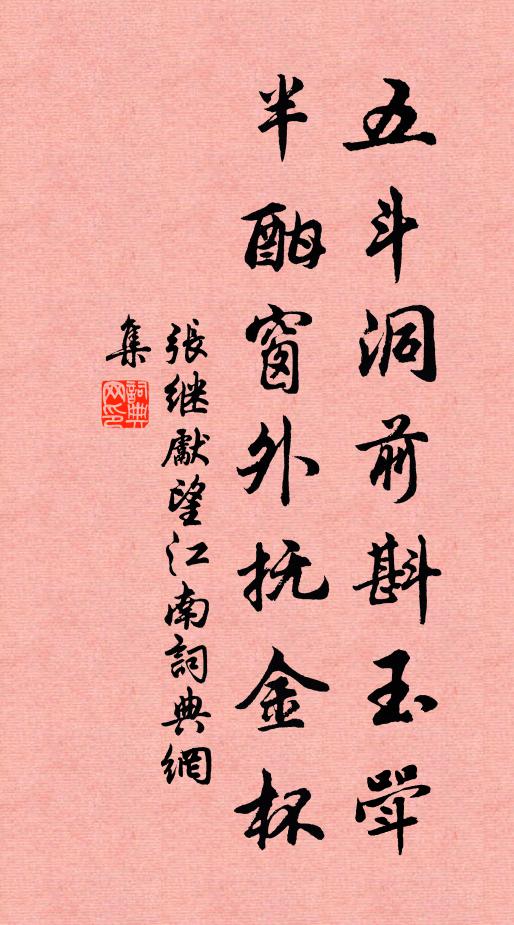 五斗洞前斟玉斝
半酣窗外抚金杯
張继獻望江南詞典網
集
詞典网印